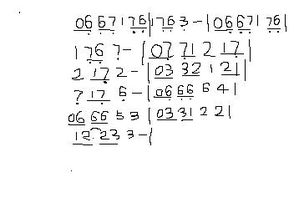 0667176|1763-|0667176|
176?-|0771217|
2172-|0332121|
?176-|0666641|
066653|0331221|
122233-|